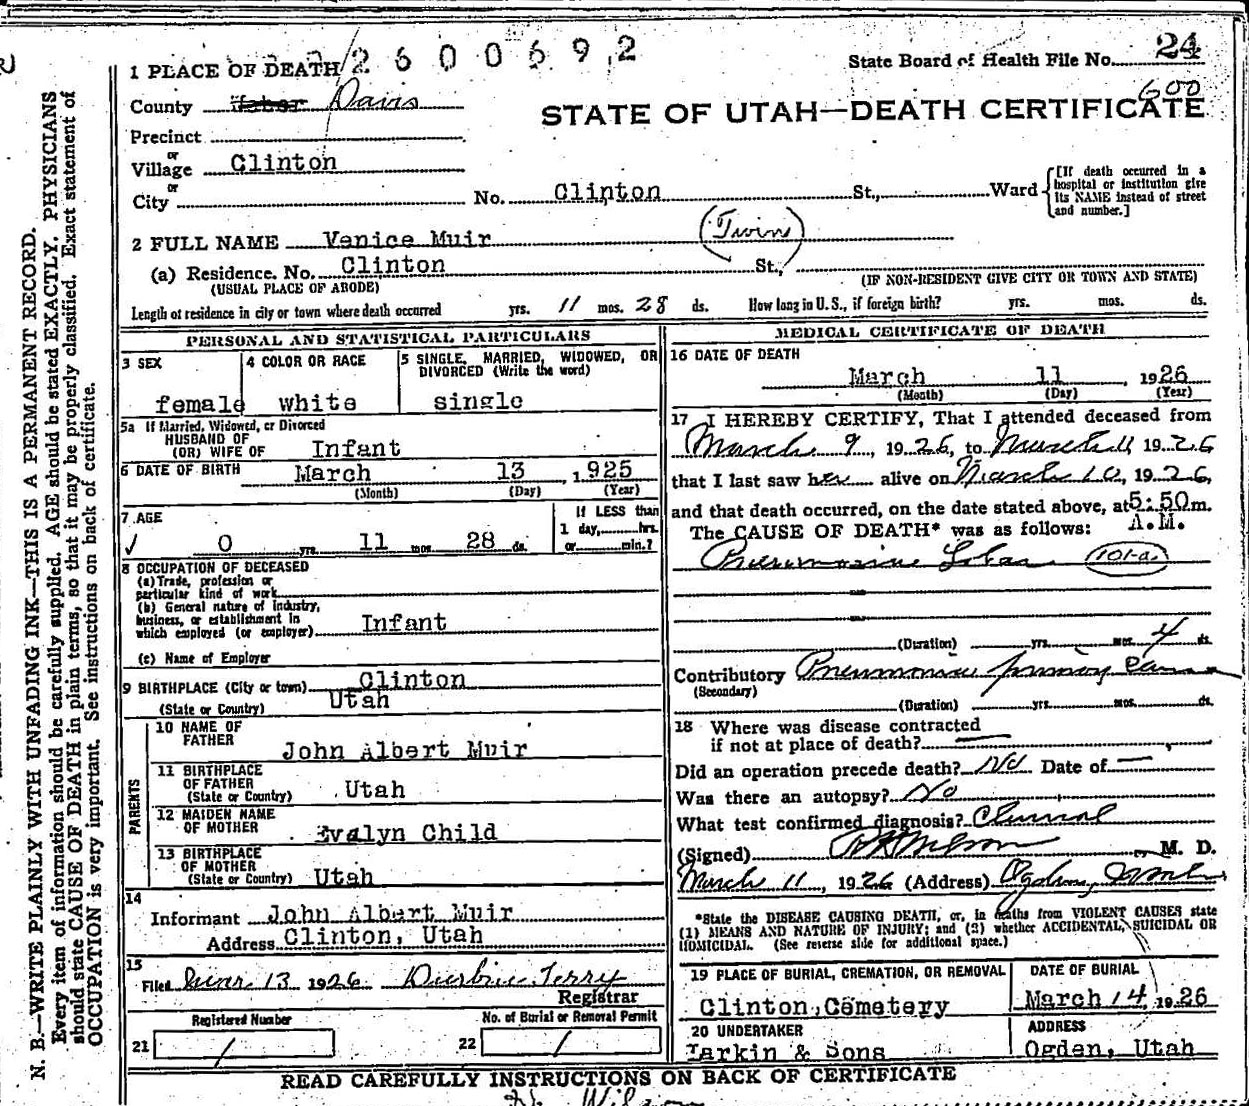 2600692
State Board of Health File No. 24
1 PLACE OF DEATH
County Weber Davis
600
STATE OF UTAH—DEATH CERTIFICATE
Precinct
or
Village Clinton
or
City
No. Clinton St., Ward
[If death occurred in a hospital or institution give its NAME instead of street and number.]
2 FULL NAME Venice Muir (Twins)
(a) Residence. No. Clinton St.,
(USUAL PLACE OF ABODE)
(IF NON-RESIDENT GIVE CITY OR TOWN AND STATE)
Length of residence in city or town where death occurred yrs. 11 mos. 28 ds. How long in U.S., if foreign birth? yrs. mos. ds.
PERSONAL AND STATISTICAL PARTICULARS
3 SEX
female
4 COLOR OR RACE
white
5 SINGLE, MARRIED, WIDOWED, OR DIVORCED (Write the word)
single
5a If Married, Widowed, or Divorced
HUSBAND OF
(OR) WIFE OF Infant
6 DATE OF BIRTH March 13, 1925
(Month) (Day) (Year)
7 AGE
0 yrs. 11 mos. 28 ds.
If LESS than
1 day, hrs.
or min.?
8 OCCUPATION OF DECEASED
(a) Trade, profession or
particular kind of work
(b) General nature of industry,
business, or establishment in
which employed (or employer) Infant
(c) Name of Employer
9 BIRTHPLACE (City or town) Clinton
(State or Country) Utah
PARENTS
10 NAME OF
FATHER John Albert Muir
11 BIRTHPLACE
OF FATHER
(State or Country) Utah
12 MAIDEN NAME
OF MOTHER Evalyn Child
13 BIRTHPLACE
OF MOTHER
(State or Country) Utah
14
Informant John Albert Muir
Address Clinton, Utah
15
Filed Mar. 13 1926
Terry
Registrar
Registered Number
21 1
No. of Burial or Removal Permit
22 1
MEDICAL CERTIFICATE OF DEATH
16 DATE OF DEATH
March 11, 1926
(Month) (Day) (Year)
17 I HEREBY CERTIFY, That I attended deceased from
March 9, 1926, to March 11, 1926
that I last saw her alive on March 10, 1926,
and that death occurred, on the date stated above, at 5:50 m.
A.M.
The CAUSE OF DEATH* was as follows:
Pneumonia Lobar 101-a
(Duration) yrs. mos. 4 ds
Contributory Pneumonia primary cause
(Secondary)
(Duration) yrs. mos. ds.
18 Where was disease contracted
if not at place of death? —
Did an operation precede death? No Date of —
Was there an autopsy? No
What test confirmed diagnosis? Clinical
(Signed) M. D.
March 11, 1926 (Address) Ogden, Utah
*State the DISEASE CAUSING DEATH, or, in deaths from VIOLENT CAUSES state
(1) MEANS AND NATURE OF INJURY; and (2) whether ACCIDENTAL, SUICIDAL OR
HOMICIDAL. (See reverse side for additional space.)
19 PLACE OF BURIAL, CREMATION, OR REMOVAL
Clinton, Cemetery
DATE OF BURIAL
March 14, 1926
20 UNDERTAKER
Larkin & Sons
ADDRESS
Ogden, Utah
READ CAREFULLY INSTRUCTIONS ON BACK OF CERTIFICATE
N. B.—WRITE PLAINLY WITH UNFADING INK—THIS IS A PERMANENT RECORD.
Every item of information should be carefully supplied. AGE should be stated EXACTLY, PHYSICIANS
should state CAUSE OF DEATH in plain terms, so that it may be properly classified. Exact statement of
OCCUPATION is very important. See instructions on back of certificate.